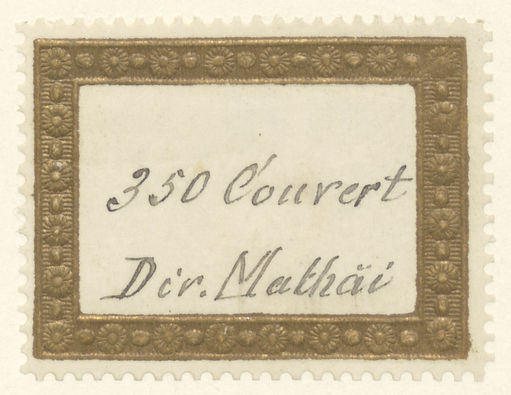 350 Couvert
Dir. Mathäi